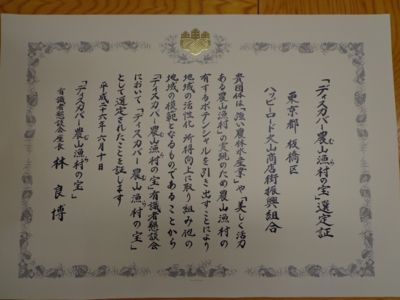 「ディスカバー農山漁村の宝」選定証
東京都 板橋区
ハッピーロード大山商店街振興組合
貴団体は、「強い農林水産業」や「美しく活力
ある農山漁村」の実現のため農山漁村の
有するポテンシャルを引き出すことにより
地域の活性化、所得向上に取り組み、他の
地域の模範となるものであることから
「ディスカバー農山漁村の宝」有識者懇談会
において「ディスカバー農山漁村の宝」
として選定されたことを証します
平成二十六年六月十日
「ディスカバー農山漁村の宝」
有識者懇談会座長 林 良博